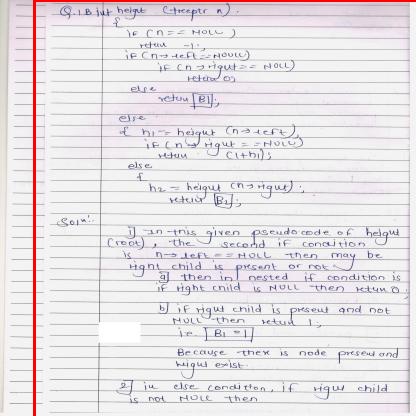 Q.1B int height (treeptr n).
{
if (n == NULL)
return -1;
if (n→left == NULL)
if (n→right == NULL)
return 0;
else
return [B1];
else
{ h1 = height (n→left),
if (n→right == NULL)
return (1+h1);
else
{
h2 = height (n→right);
return [B2];
Soln:
1] In this given pseudocode of height
(root), the second if condition
is n→left == NULL then may be
right child is present or not
a] then in nested if condition is
if right child is NULL then return 0;
b] if right child is present and not
NULL then return 1,
i.e. [B1 = 1]
Because there is node present and
height exist.
2] in else condition, if right child
is not NULL then